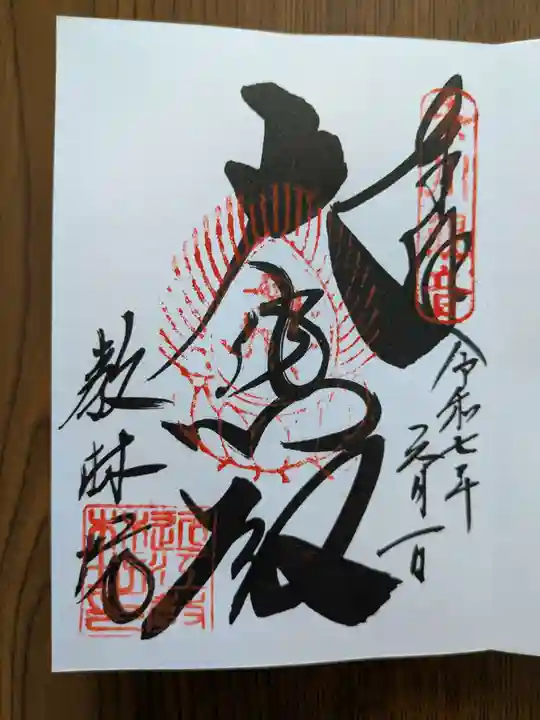 奉拝
令和七年
元月一日
大悲殿
教林坊